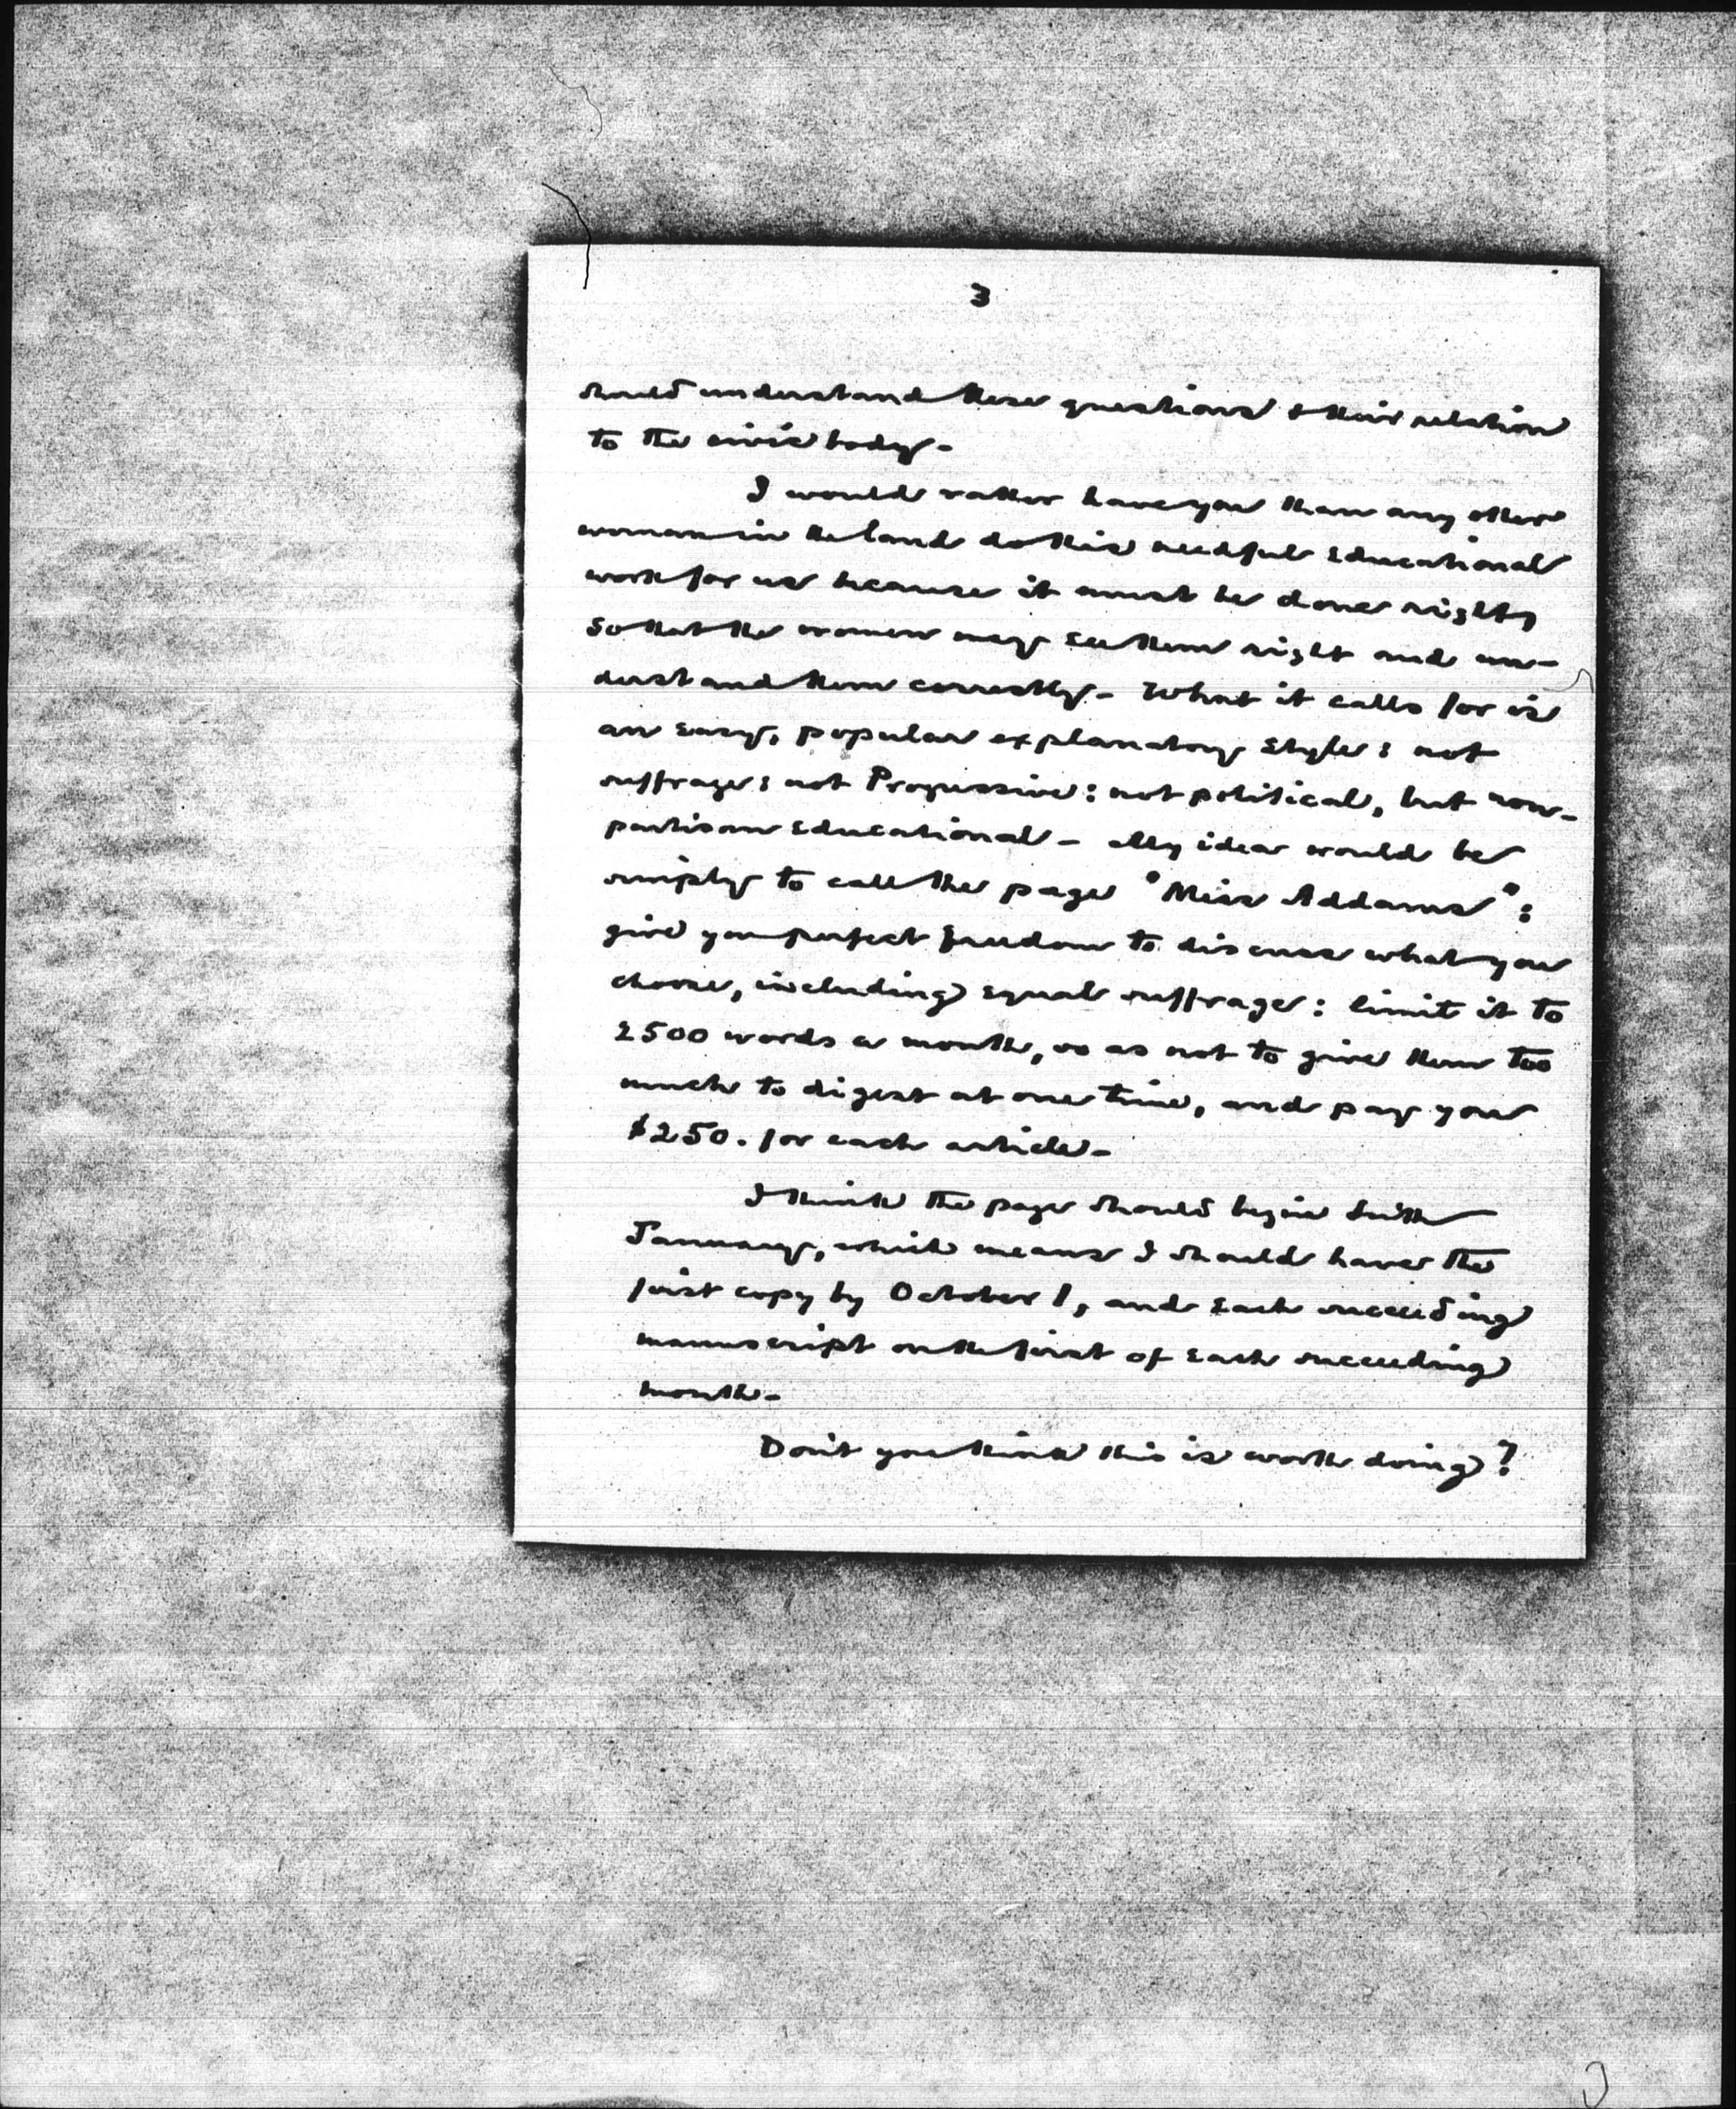 3
should understand these questions & their relation
to the civic body -
I would rather have you than any other
woman in the land do this needful educational
work for us because it must be done right,
so that the women may see them right and un-
derstand them correctly - What it calls for is
an easy, popular explanatory style: not
suffrage: not Progressive: not political, but non-
partisan educational - My idea would be
simply to call the page "Miss Addams":
give you perfect freedom to discuss what you
choose, including equal suffrage: limit it to
2500 words a month, so as not to give them too
much to digest at one time, and pay you
$250. for each article -
I think the page should begin with
January, which means I should have the
first copy by October 1, and each succeeding
manuscript on the first of each succeeding
month -
Don't you think this is worth doing?